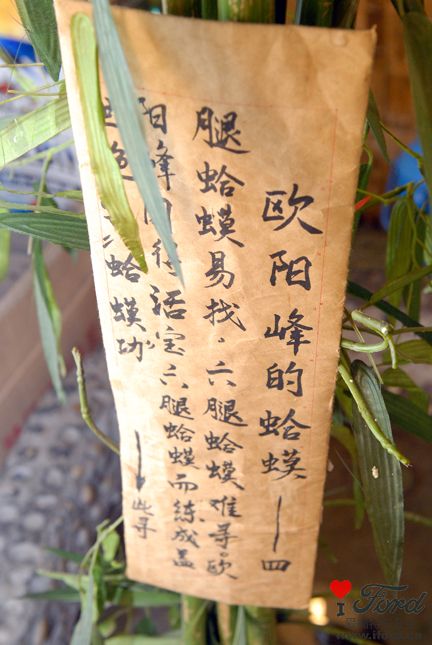 欧阳峰的蛤蟆——四
腿蛤蟆易找，六腿蛤蟆难寻。欧
阳峰得活宝六腿蛤蟆而练成盖
蛤蟆功”——此寻
I ♥ Ford
www.iford.cn